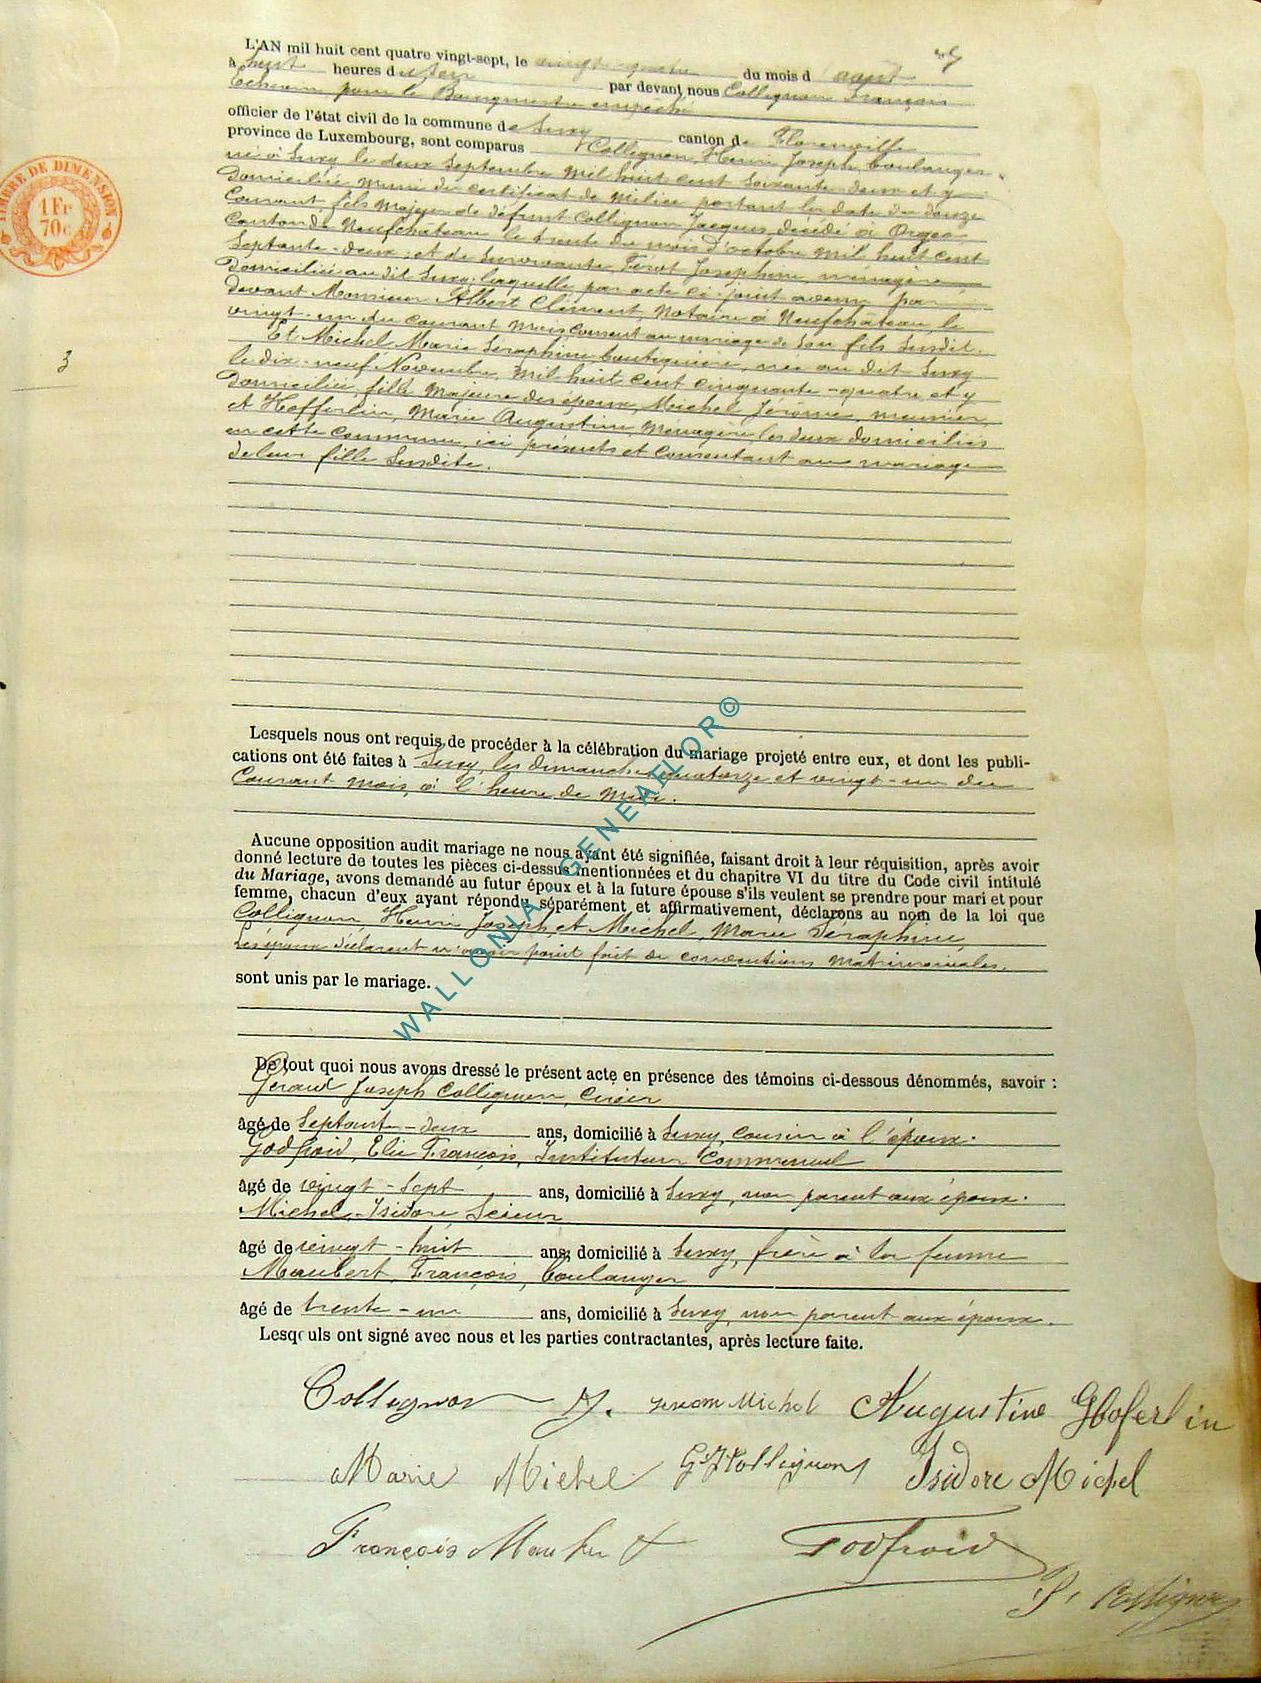 L'AN mil huit cent quatre vingt-sept, le vingt-quatre du mois d'août
à huit heures du soir par devant nous Collignon François
Echevin pour le Bourgmestre empêché
officier de l'état civil de la commune de Suxy canton de Florenville
province de Luxembourg, sont comparus Collignon, Henri Joseph, boulanger,
né à Suxy le deux Septembre mil huit cent soixante-deux et y
domicilié, muni du certificat de milice portant la date du douze
Courant, fils majeur de défunt Collignon Jacques, décédé à Orgeo
Canton de Neufchâteau le trente du mois d'octobre mil huit cent
Septante-deux; et de survivante Férot Josephine, ménagère
domiciliée au dit Suxy, laquelle par acte ci-joint avenu par
devant Monsieur Albert Clément, Notaire à Neufchâteau, le
vingt-un du courant mois consent au mariage de son fils susdit.
Et Michel Marie Séraphine boutiquière, née au dit Suxy
le dix-neuf Novembre mil huit cent cinquante-quatre et y
domiciliée, fille majeure des époux, Michel Jérôme, meunier,
et Hofferlin, Marie Augustine, Ménagère les deux domiciliés
en cette commune, ici présents et consentant au mariage
de leur fille susdite.
3
TIMBRE DE DIMENSION
1 Fr
70c
Lesquels nous ont requis de procéder à la célébration du mariage projeté entre eux, et dont les publi-
cations ont été faites à Suxy, les dimanches quatorze et vingt-un du
Courant mois, à l'heure de midi.
Aucune opposition audit mariage ne nous ayant été signifiée, faisant droit à leur réquisition, après avoir
donné lecture de toutes les pièces ci-dessus mentionnées et du chapitre VI du titre du Code civil intitulé
du Mariage, avons demandé au futur époux et à la future épouse s'ils veulent se prendre pour mari et pour
femme, chacun d'eux ayant répondu séparément et affirmativement, déclarons au nom de la loi que
Collignon, Henri Joseph et Michel, Marie Séraphine,
Les époux déclarent n'avoir point fait de conventions matrimoniales.
sont unis par le mariage.
WALLONIA GENEAFLOR©
De tout quoi nous avons dressé le présent acte en présence des témoins ci-dessous dénommés, savoir :
Gérard Joseph Collignon, Cirier
âgé de Septante-deux ans, domicilié à Suxy, cousin à l'époux.
Godfroid, Elie François, Instituteur Communal
âgé de vingt-sept ans, domicilié à Suxy, non parent aux époux.
Michel, Isidore, Scieur
âgé de vingt-huit ans, domicilié à Suxy, frère à la femme
Maubert, François, boulanger
âgé de trente-un ans, domicilié à Suxy, non parent aux époux.
Lesquels ont signé avec nous et les parties contractantes, après lecture faite.
Collignon H. Jerom Michel Augustine Hoferlin
Marie Michel G. J. Collignon Isidore Michel
François Maubert Godfroid
F. Collignon